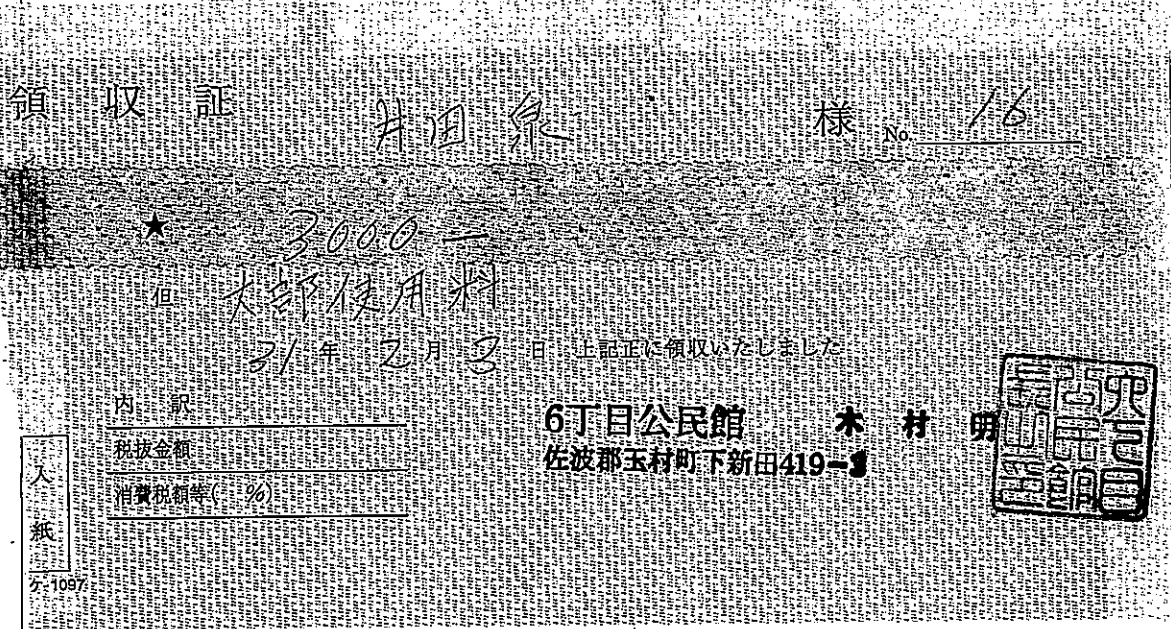 領収証 井田 泉 様 No. 16
★ 3000 —
但 大部使用料
31年 2月 3日 上記正に領収いたしました
内 訳
税抜金額
消費税額等( %)
6丁目公民館 木 村 明
佐波郡玉村町下新田419-
六丁目公民館
入
紙
ケ-1097